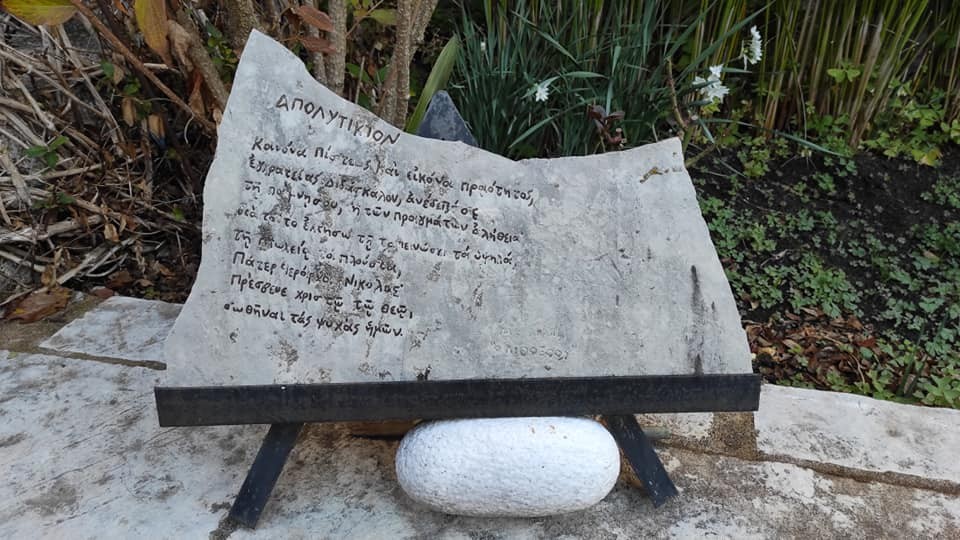 ΑΠΟΛΥΤΙΚΙΟΝ
Κανόνα Πίστεως καὶ εἰκόνα πραότητος,
ἐγκρατείας Διδάσκαλον, ἀνέδειξέ σε
τῇ ποίμνῃ σου, ἡ τῶν πραγμάτων ἀλήθεια
διὰ τοῦτο ἐκτήσω τῇ ταπεινώσει τά ὑψηλά,
τῇ πτωχείᾳ τὰ πλούσια,
Πάτερ Ἱεράρχα Νικόλαε
Πρέσβευε χριστῷ τῷ θεῷ,
σωθῆναι τάς ψυχάς ἡμῶν.